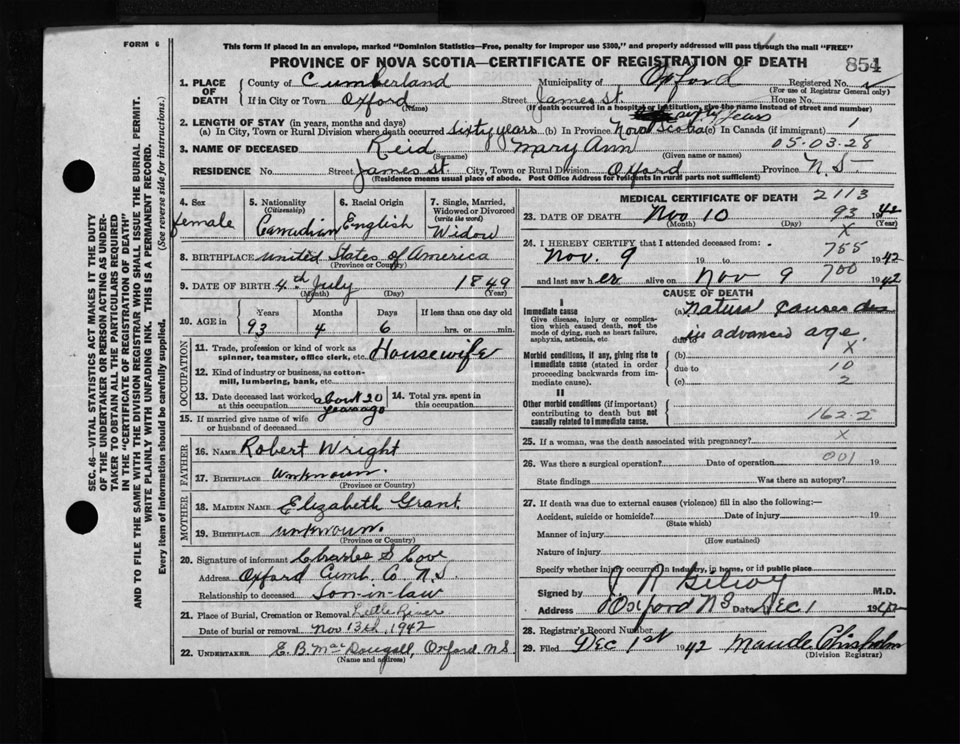 FORM 6
This form if placed in an envelope, marked "Dominion Statistics—Free, penalty for improper use $300," and properly addressed will pass through the mail "FREE"
PROVINCE OF NOVA SCOTIA—CERTIFICATE OF REGISTRATION OF DEATH
854
1. PLACE OF DEATH County of Cumberland Municipality of Oxford Registered No.
(For use of Registrar General only)
If in City or Town Oxford Street James St. House No.
(Name) (If death occurred in a hospital or institution, give the name instead of street and number)
2. LENGTH OF STAY (in years, months and days) sixty years
(a) In City, Town or Rural Division where death occurred sixty years (b) In Province Nova Scotia (c) In Canada (if immigrant) 1
3. NAME OF DECEASED Reid Mary Ann 05-03-28
(Surname) (Given name or names)
RESIDENCE No. Street James St. City, Town or Rural Division Oxford Province N.S.
(Residence means usual place of abode. Post Office Address for residents in rural parts not sufficient)
4. Sex
female
5. Nationality
(Citizenship)
Canadian
6. Racial Origin
English
7. Single, Married, Widowed or Divorced
(write the word)
Widow
8. BIRTHPLACE United States of America
(Province or Country)
9. DATE OF BIRTH 4th July 1849
(Month) (Day) (Year)
10. AGE in Years Months Days If less than one day old
93 4 6 hrs. or min.
OCCUPATION
11. Trade, profession or kind of work as spinner, teamster, office clerk, etc. Housewife
12. Kind of industry or business, as cotton-mill, lumbering, bank, etc.
13. Date deceased last worked at this occupation about 20 years ago
14. Total yrs. spent in this occupation
15. If married give name of wife or husband of deceased
FATHER
16. NAME Robert Wright
17. BIRTHPLACE unknown.
(Province or Country)
MOTHER
18. MAIDEN NAME Elizabeth Grant
19. BIRTHPLACE unknown.
(Province or Country)
20. Signature of informant Charles S Cove
Address Oxford Cumb. Co. N.S.
Relationship to deceased Son-in-law
21. Place of Burial, Cremation or Removal Little River
Date of burial or removal Nov 13th, 1942
22. UNDERTAKER E. B. MacDougall, Oxford N.S.
(Name and address)
MEDICAL CERTIFICATE OF DEATH 2113
23. DATE OF DEATH Nov 10 93 1942
(Month) (Day) X (Year)
24. I HEREBY CERTIFY that I attended deceased from: 755
Nov. 9 19 to 1942
and last saw her alive on Nov 9 700 1942
CAUSE OF DEATH
I
Immediate cause
Give disease, injury or complication which caused death, not the mode of dying, such as heart failure, asphyxia, asthenia, etc.
(a) Natural causes
due to in advanced age.
Morbid conditions, if any, giving rise to immediate cause (stated in order proceeding backwards from immediate cause).
(b) X
due to 10
(c) 2
II
Other morbid conditions (if important) contributing to death but not causally related to immediate cause.
162-2
25. If a woman, was the death associated with pregnancy? X
26. Was there a surgical operation? Date of operation 001 19
State findings Was there an autopsy?
27. If death was due to external causes (violence) fill in also the following:—
Accident, suicide or homicide? Date of injury 19
(State which)
Manner of injury
(How sustained)
Nature of injury
Specify whether injury occurred in industry, in home, or in public place
Signed by M.D.
Address Oxford NS Date Dec 1 1942
28. Registrar's Record Number
29. Filed Dec 1st 1942 Maude Chisholm
(Division Registrar)
SEC. 46—VITAL STATISTICS ACT MAKES IT THE DUTY
OF THE UNDERTAKER OR PERSON ACTING AS UNDER-
TAKER TO OBTAIN ALL THE PARTICULARS REQUIRED
IN THE "CERTIFICATE OF REGISTRATION OF DEATH"
AND TO FILE THE SAME WITH THE DIVISION REGISTRAR WHO SHALL ISSUE THE BURIAL PERMIT.
WRITE PLAINLY WITH UNFADING INK. THIS IS A PERMANENT RECORD.
Every item of information should be carefully supplied. (See reverse side for instructions.)